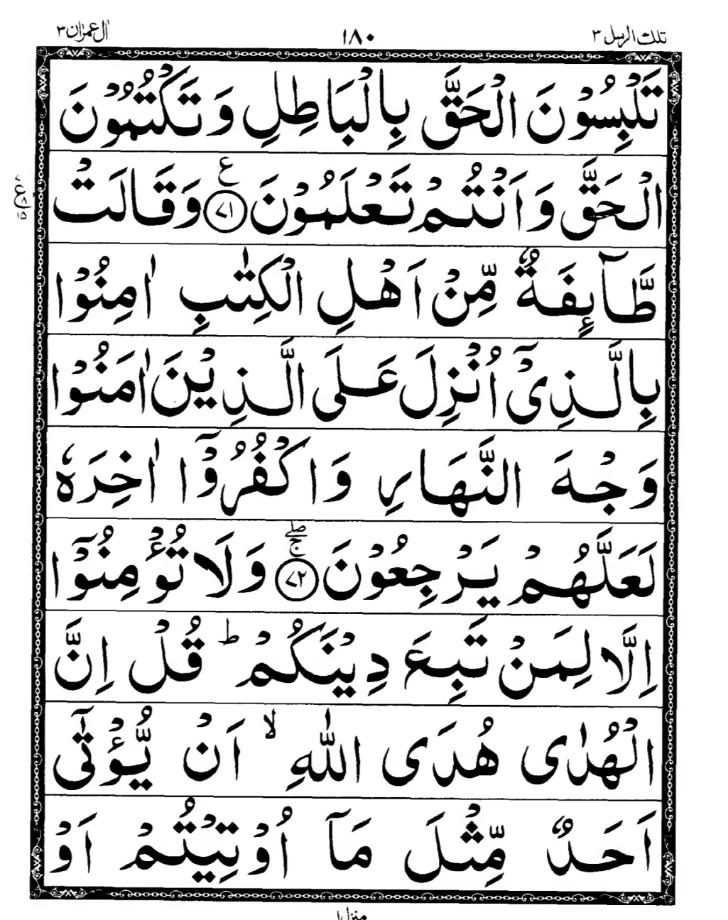 تلك الرسل ٣ ١٨٠ اٰل عمرٰن ٣
تَلْبِسُوْنَ الْحَقَّ بِالْبَاطِلِ وَتَكْتُمُوْنَ
الْحَقَّ وَاَنْتُمْ تَعْلَمُوْنَ ﴿٧١﴾ ع وَقَالَتْ
طَّآىِٕفَةٌ مِّنْ اَهْلِ الْكِتٰبِ اٰمِنُوْا
بِالَّذِىْۤ اُنْزِلَ عَلَى الَّذِيْنَ اٰمَنُوْا
وَجْهَ النَّهَارِ وَاكْفُرُوْۤا اٰخِرَهٗ
لَعَلَّهُمْ يَرْجِعُوْنَ ﴿٧٢﴾ ۖۚ وَلَا تُؤْمِنُوْۤا
اِلَّا لِمَنْ تَبِعَ دِيْنَكُمْ ؕ قُلْ اِنَّ
الْهُدٰى هُدَى اللّٰهِ ۙ اَنْ يُّؤْتٰۤى
اَحَدٌ مِّثْلَ مَاۤ اُوْتِيْتُمْ اَوْ
منزل ١